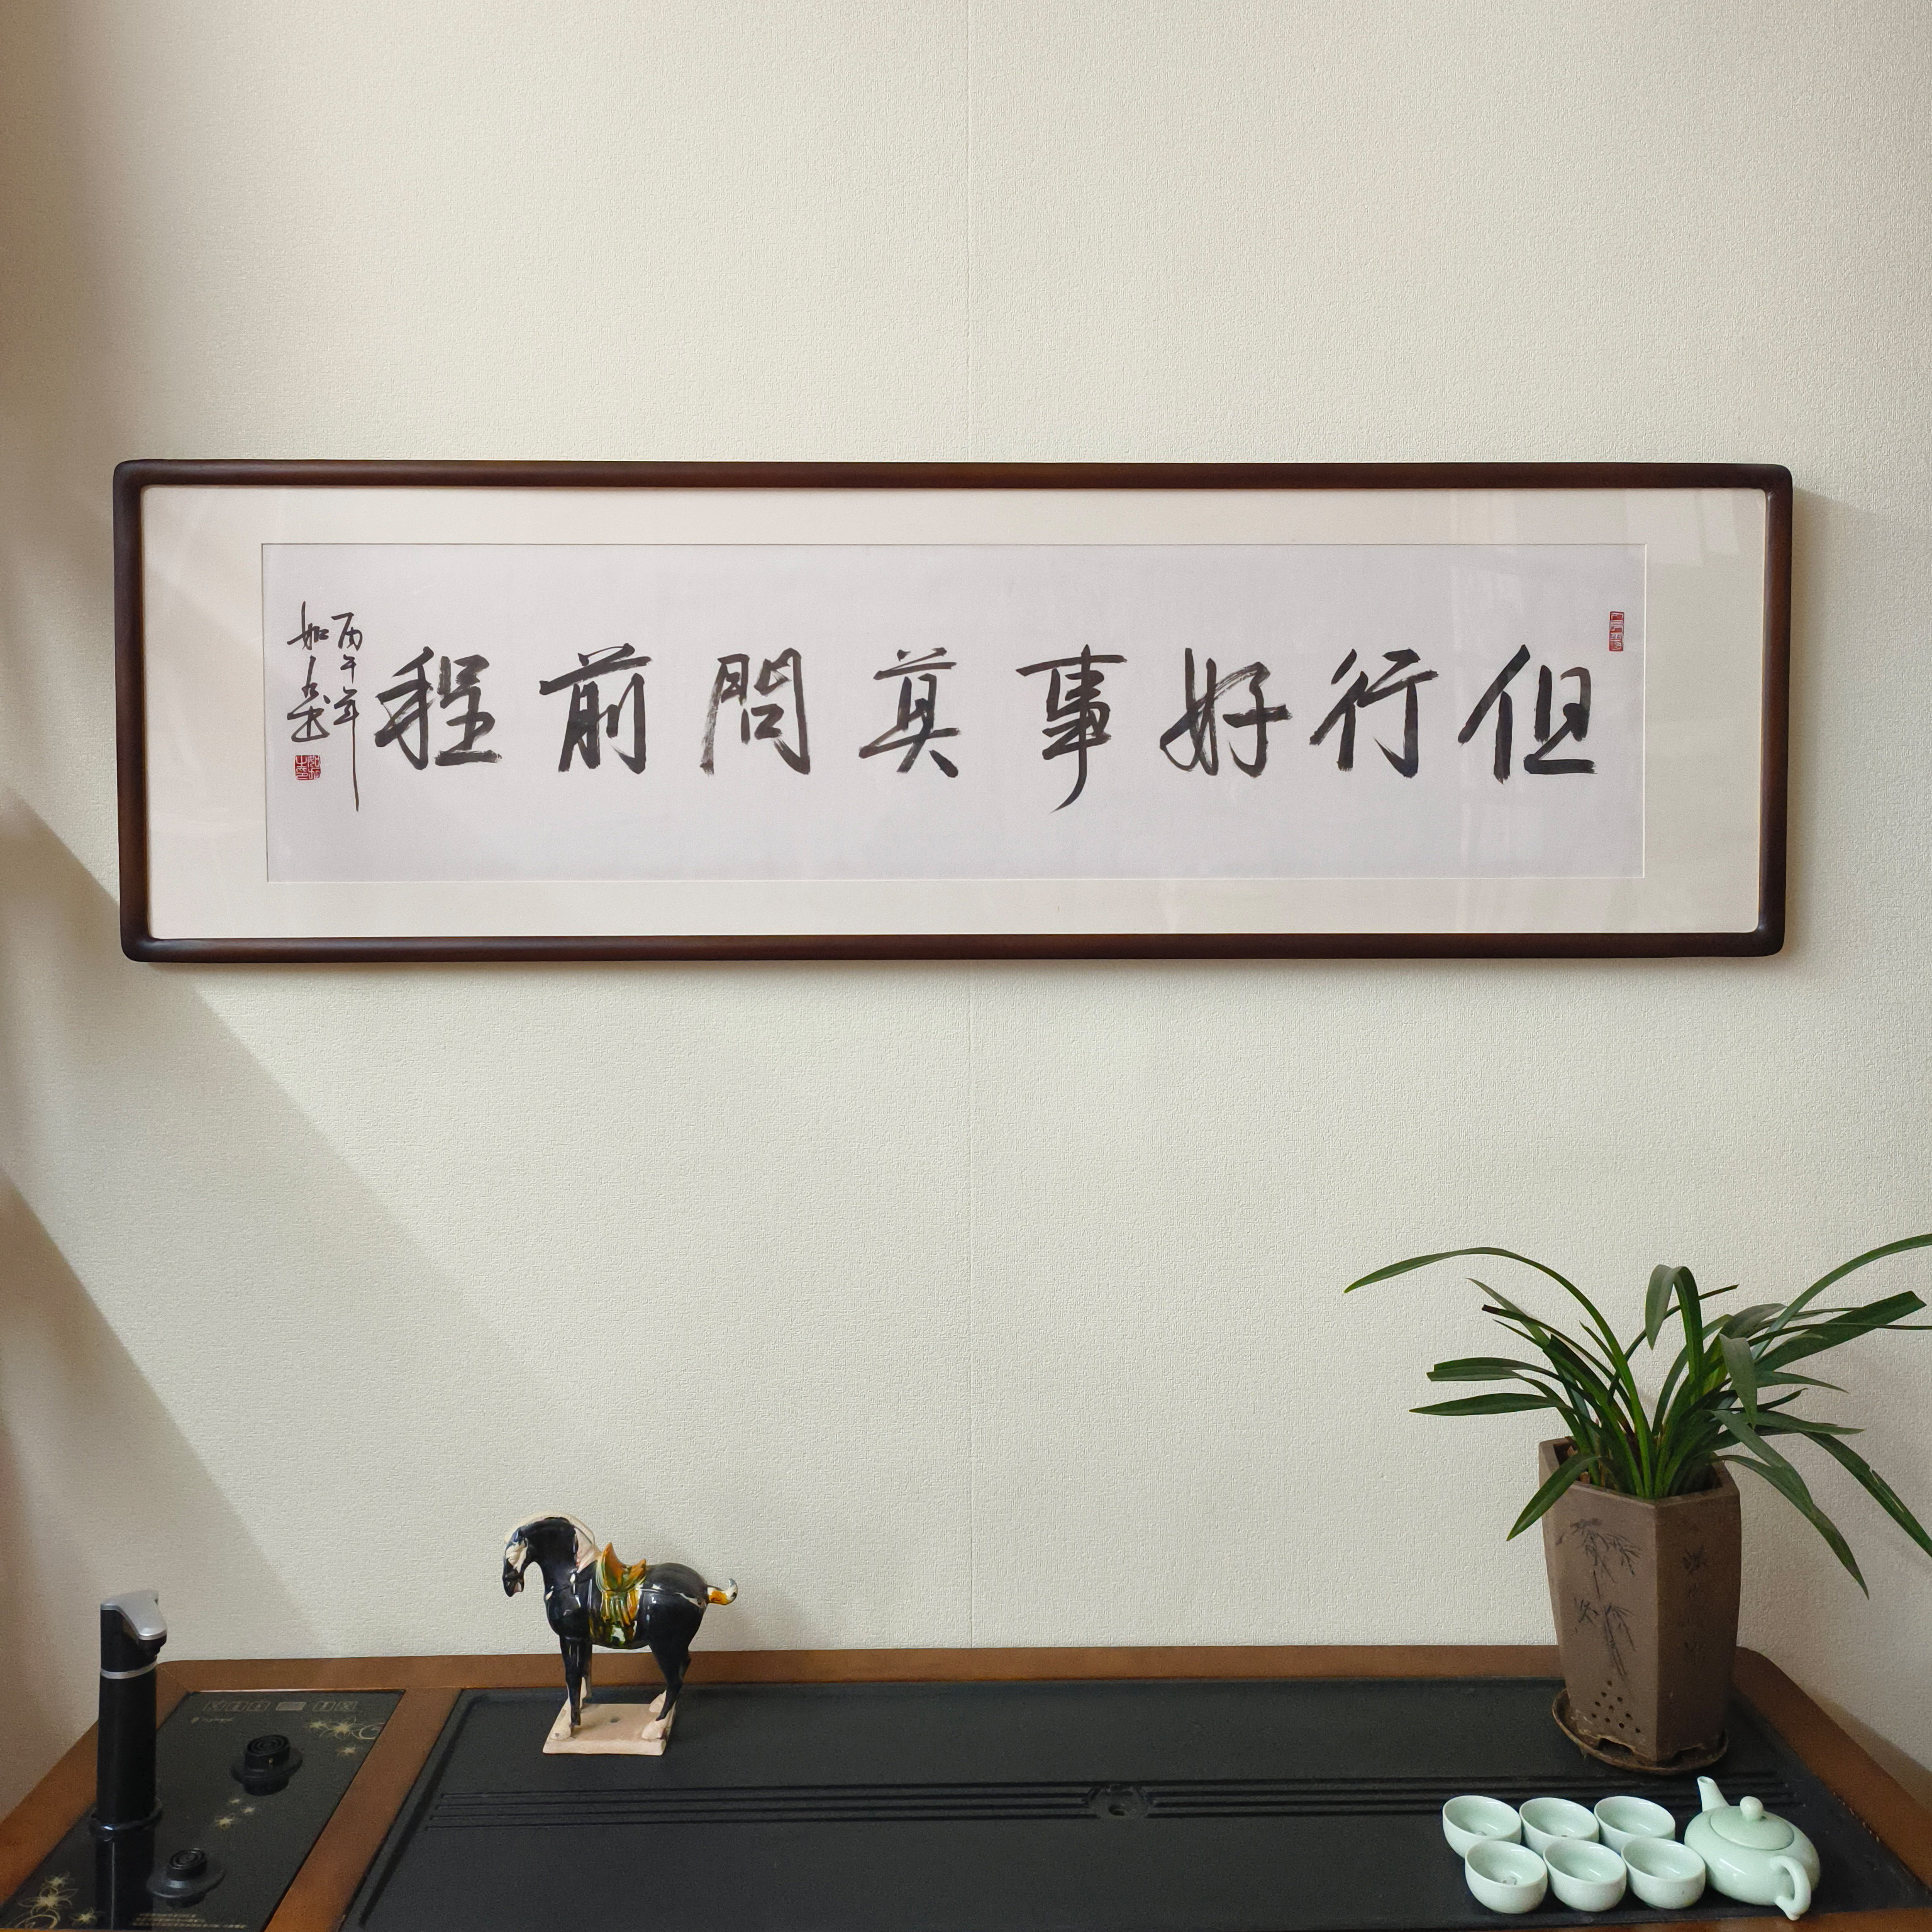 但行好事莫問前程
丙午年
如山書